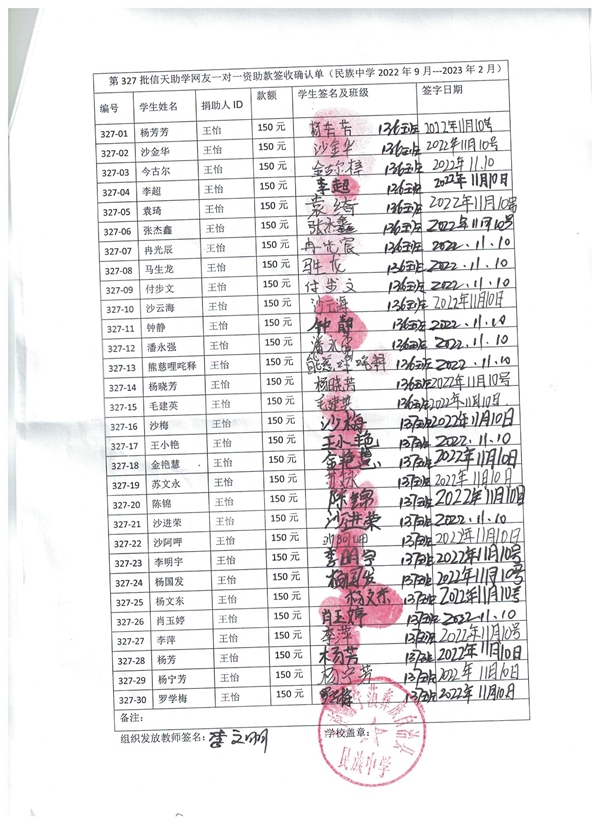 第 327 批信天助学网友一对一资助款签收确认单（民族中学 2022 年 9 月---2023 年 2 月）
编号 学生姓名 捐助人 ID 款额 学生签名及班级 签字日期
327-01 杨芳芳 王怡 150 元 杨芳芳 136班 2022年11月10号
327-02 沙金华 王怡 150 元 沙金华 136班 2022年11月10号
327-03 今古尔 王怡 150 元 136班 2022年11.10
327-04 李超 王怡 150 元 李超 136班 2022年11月10日
327-05 袁琦 王怡 150 元 袁绮 136班 2022年11月10号
327-06 张杰鑫 王怡 150 元 张杰鑫 136班 2022年11月10号
327-07 冉光辰 王怡 150 元 冉光宸 136班 2022.11.10
327-08 马生龙 王怡 150 元 马生龙 136班 2022.11.10
327-09 付步文 王怡 150 元 付步文 136班 2022.11.10
327-10 沙云海 王怡 150 元 沙云海 136班 2022年11月10日
327-11 钟静 王怡 150 元 钟静 136班 2022.11.10
327-12 潘永强 王怡 150 元 136班 2022.11.10
327-13 熊慈哩咤释 王怡 150 元 136班 2022.11.10
327-14 杨晓芳 王怡 150 元 杨晓芳 136班 2022年11月10号
327-15 毛建英 王怡 150 元 毛建英 136班 2022年11月10日.
327-16 沙梅 王怡 150 元 沙梅 137班 2022年11月10日
327-17 王小艳 王怡 150 元 王小艳 137班 2022.11.10
327-18 金艳慧 王怡 150 元 金艳慧 137班 2022年11月10日
327-19 苏文永 王怡 150 元 137班 2022年11月10日
327-20 陈锦 王怡 150 元 陈锦 137班 2022年11月10日
327-21 沙进荣 王怡 150 元 沙进荣 137班 2022.11.10
327-22 沙阿呷 王怡 150 元 沙阿呷 137班 2022年11月10日
327-23 李明宇 王怡 150 元 李明宇 137班 2022年11月10号
327-24 杨国发 王怡 150 元 杨国发 137班 2022年11月10号
327-25 杨文东 王怡 150 元 杨文东 137班 2022年11月10号
327-26 肖玉婷 王怡 150 元 肖玉婷 137班 2022.11.10
327-27 李萍 王怡 150 元 李萍 137班 2022年11月10号
327-28 杨芳 王怡 150 元 杨芳 137班 2022年11月10日
327-29 杨宁芳 王怡 150 元 杨宁芳 137班 2022年11月10日
327-30 罗学梅 王怡 150 元 137班 2022年11月10日
备注：
组织发放教师签名： 李文明 学校盖章：
民族中学